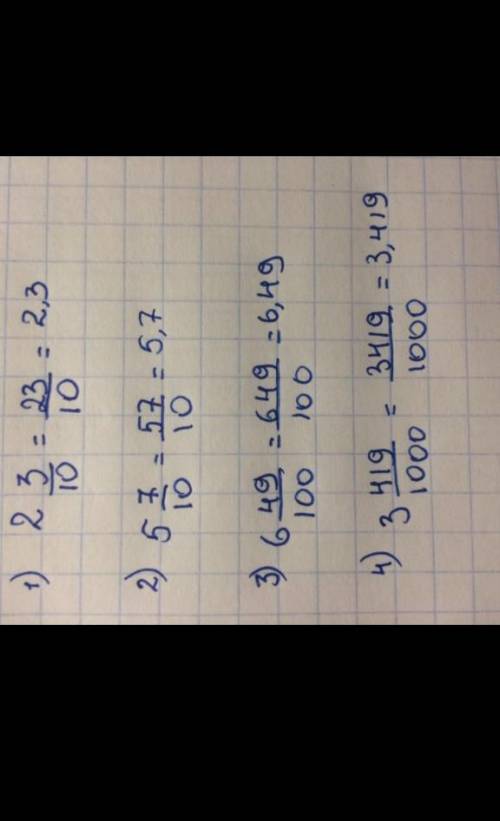 1) 2 3/10 = 23/10 = 2,3
2) 5 7/10 = 57/10 = 5,7
3) 6 49/100 = 649/100 = 6,49
4) 3 419/1000 = 3419/1000 = 3,419